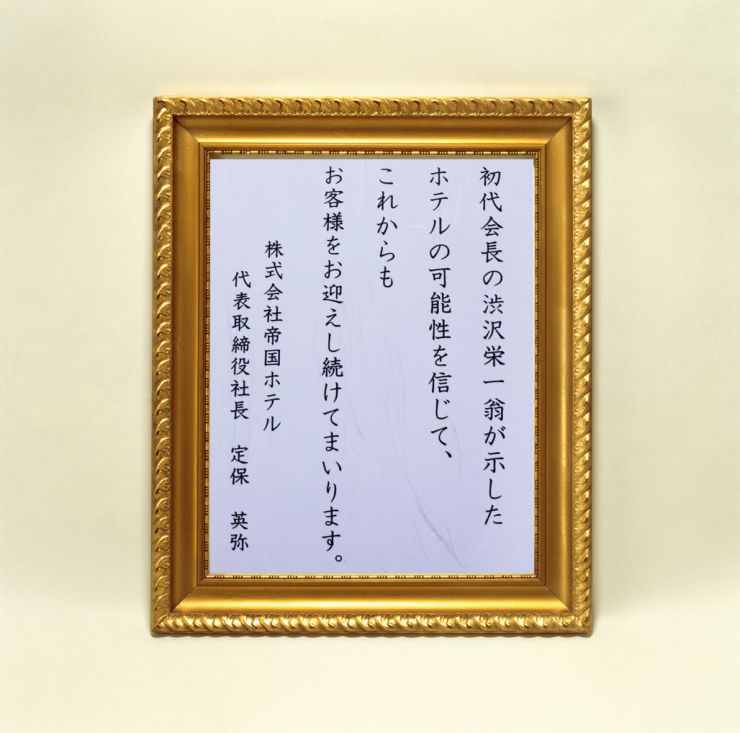 初代会長の渋沢栄一翁が示した
ホテルの可能性を信じて、
これからも
お客様をお迎えし続けてまいります。
株式会社帝国ホテル
代表取締役社長 定保 英弥